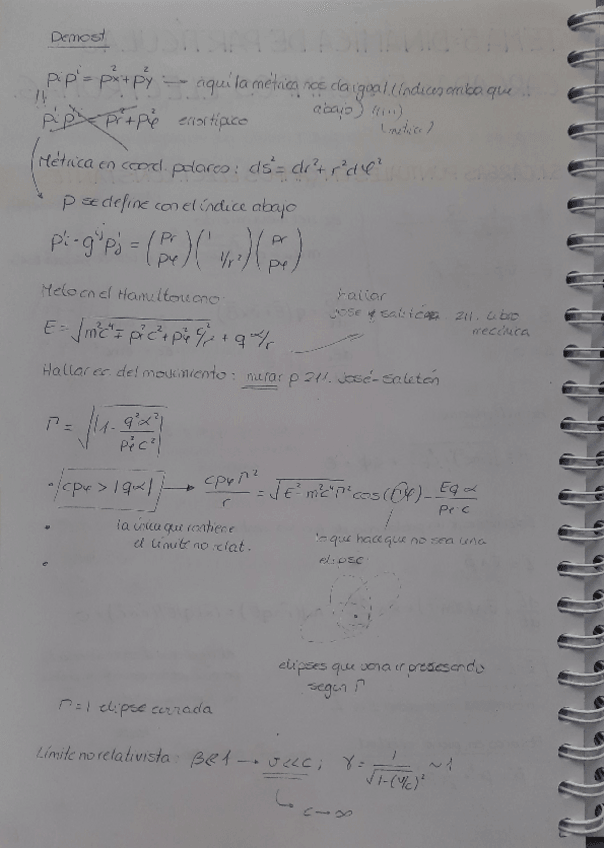 Demost
pᵢpⁱ = pₓ² + p_y² — aquí la métrica nos da igual (índices arriba que
abajo)
pᵢpⁱ = p_r² + p_φ² error típico
(métrica)
Métrica en coord. polares: ds² = dr² + r²dφ²
p se define con el índice abajo
pⁱ = gⁱʲpⱼ = (p_r p_φ) (1 1/r²) (p_r p_φ)
Meto en el Hamiltoniano
E = √(m²c⁴ + p_r²c² + p_φ² c²/r²) + qα/r
José y Saletán 211. libro
mecánica
Hallar ec. del movimiento: mirar p 211. José-Saletán
Γ = √|1 - q²α²/p_φ²c²|
• |cp_φ > |qα|| → cp_φΓ²/r = √(E² m²c⁴Γ²) cos(Γφ) - Eqα/p_φ·c
• la única que contiene
el límite no relat.
lo que hace que no sea una
elipse
•
elipses que van a ir precesando
según Γ
Γ=1 elipse cerrada
Límite no relativista: β≪1 → v≪c; γ = 1/√(1-(v/c)²) ~ 1
↳ c→∞